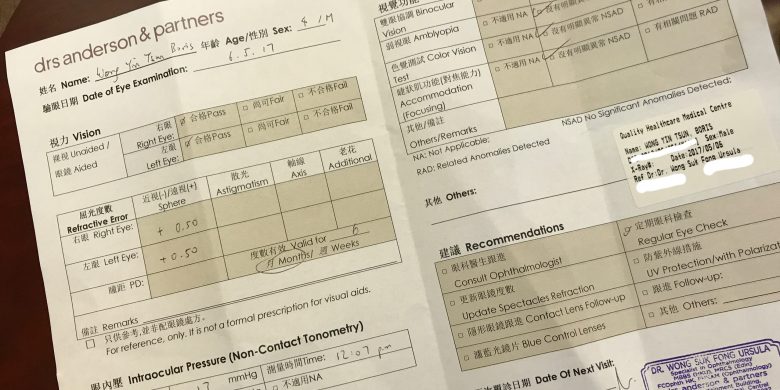 drs anderson & partners
姓名 Name: Wong Yin Tsun Boris 年齡 Age/性別 Sex: 4 / M
驗眼日期 Date of Eye Examination: 6.5.17
視力 Vision
裸視 Unaided / 眼鏡 Aided
右眼 Right Eye: 合格Pass 尚可Fair 不合格Fail
左眼 Left Eye: 合格Pass 尚可Fair 不合格Fail
屈光度數 Refractive Error
近視(-)/遠視(+) Sphere
散光 Astigmatism
軸線 Axis
老花 Additional
右眼 Right Eye: + 0.50
左眼 Left Eye: + 0.50
瞳距 PD:
度數有效 Valid for 6
月 Months/ 週 Weeks
備註 Remarks
只供參考,並非配眼鏡處方。
For reference, only. It is not a formal prescription for visual aids.
眼內壓 Intraocular Pressure (Non-Contact Tonometry)
17 mmHg 測量時間Time: 12:07 pm
不適用NA
視覺功能
雙眼協調 Binocular Vision 不適用 NA 沒有明顯異常 NSAD
弱視眼 Amblyopia 不適用 NA 沒有明顯異常 NSAD 有相關問題 RAD
色覺測試 Color Vision Test 不適用 NA 沒有明顯異常 NSAD 有相關問題 RAD
睫狀肌功能(對焦能力) Accommodation (Focusing)
其他/備註
Others/Remarks
NA: Not Applicable; NSAD No Significant Anomalies Detected;
RAD: Related Anomalies Detected
其他 Others:
Quality Healthcare Medical Centre
Name: WONG YIN TSUN, BORIS
Sex:Male
X-Ray#: Date:2017/05/06
Ref Dr:Dr. Wong Suk Fong Ursula
建議 Recommendations
眼科醫生跟進
Consult Ophthalmologist
定期眼科檢查
Regular Eye Check
更新眼鏡度數
Update Spectacles Refraction
防紫外線措施
UV Protection/with Polarizat
隱形眼鏡跟進 Contact Lens Follow-up
跟進 Follow-up:
濾藍光鏡片 Blue Control Lenses
其他 Others:
診日期 Date Of Next Visit:
DR. WONG SUK FONG URSULA
Specialist in Ophthalmology
anderson & partners